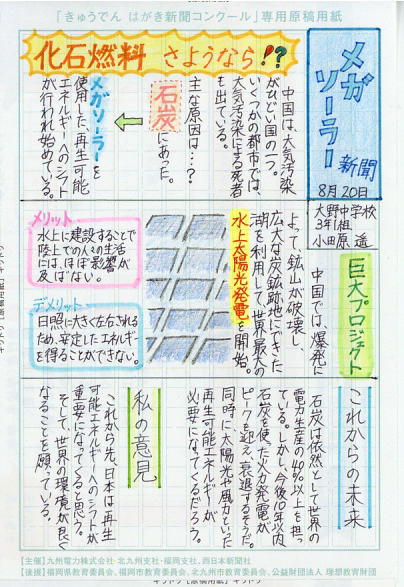 「きゅうでん はがき新聞コンクール」専用原稿用紙
メガ
ソーラー
新聞
8月20日
大野中学校
3年1組
小田原 遥
化石燃料 さようなら!?
中国は、大気汚染
がひどい国の一つ。
いくつかの都市では、
大気汚染による死者
を出ている。
主な原因は…?
石炭
にあった。
メガソーラーを
使用した、再生可能
エネルギーへのシフト
が行われ始めている。
巨大プロジェクト
中国では、爆発に
よって、鉱山が破壊し、
広大な炭鉱跡地にできた
湖を利用して、世界最大の
水上太陽光発電を開始。
メリット
水上に建設することで
陸上での人々の生活
にはほぼ影響が
及ばない。
デメリット
日照に大きく左右される
ため、安定したエネルギー
を得ることができない。
これからの未来
石炭は依然として世界の
電力生産の40%以上を担っ
ている。しかし、今後10年以内、
石炭を使った火力発電が
ピークを迎え、衰退するそうだ。
同時に、太陽光や風力といった
再生可能エネルギーが
必要になってくるだろう。
私の意見
これから先、日本は再生
可能エネルギーへのシフトが
重要になってくると思う。
そして、世界の環境が良く
なることを願っている。
【主催】九州電力株式会社・北九州支社・福岡支社、西日本新聞社
【後援】福岡県教育委員会、福岡市教育委員会、北九州市教育委員会、公益財団法人 理想教育財団